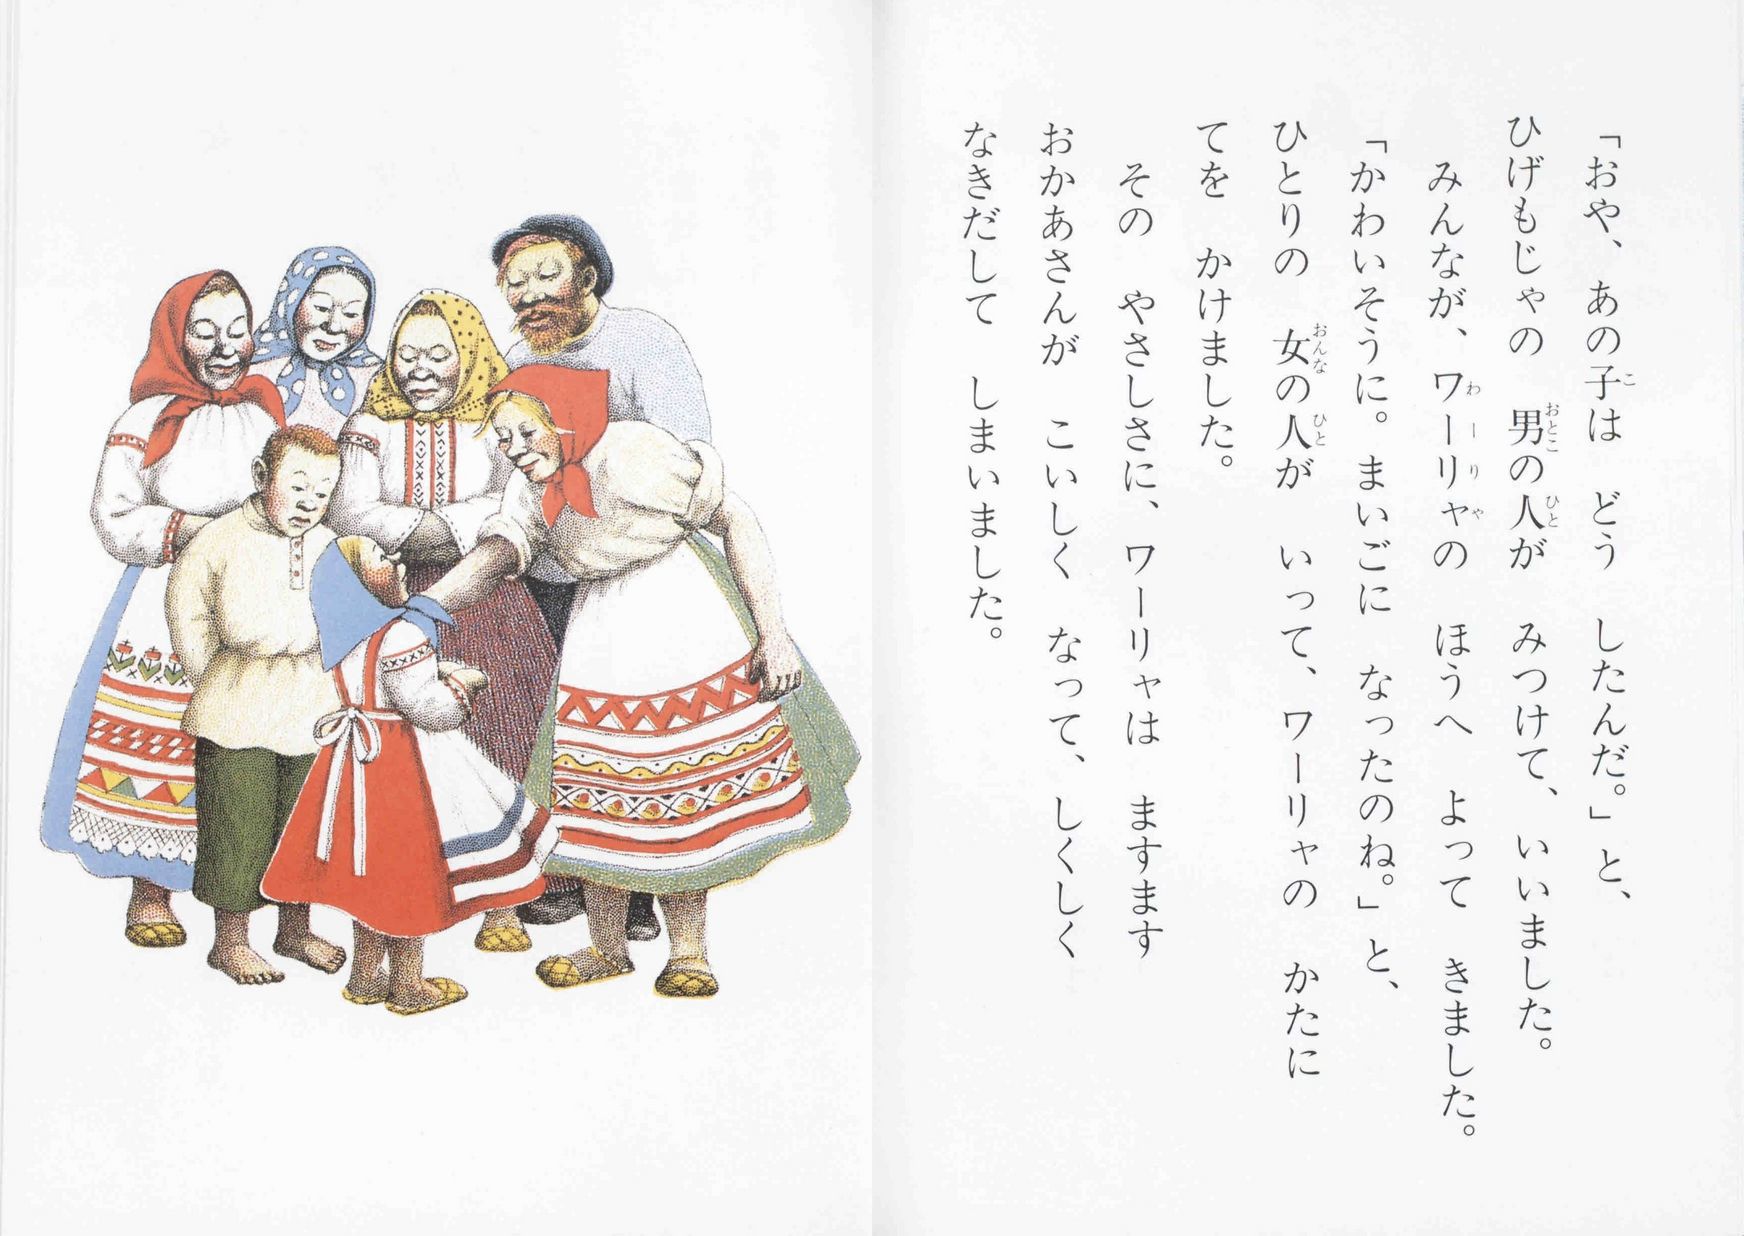 「おや、あの子は　どう　したんだ。」と、
ひげもじゃの　男の人が　みつけて、いいました。
　みんなが、ワーリャの　ほうへ　よって　きました。
「かわいそうに。まいごに　なったのね。」と、
ひとりの　女の人が　いって、ワーリャの　かたに
てを　かけました。
　その　やさしさに、ワーリャは　ますます
おかあさんが　こいしく　なって、しくしく
なきだして　しまいました。